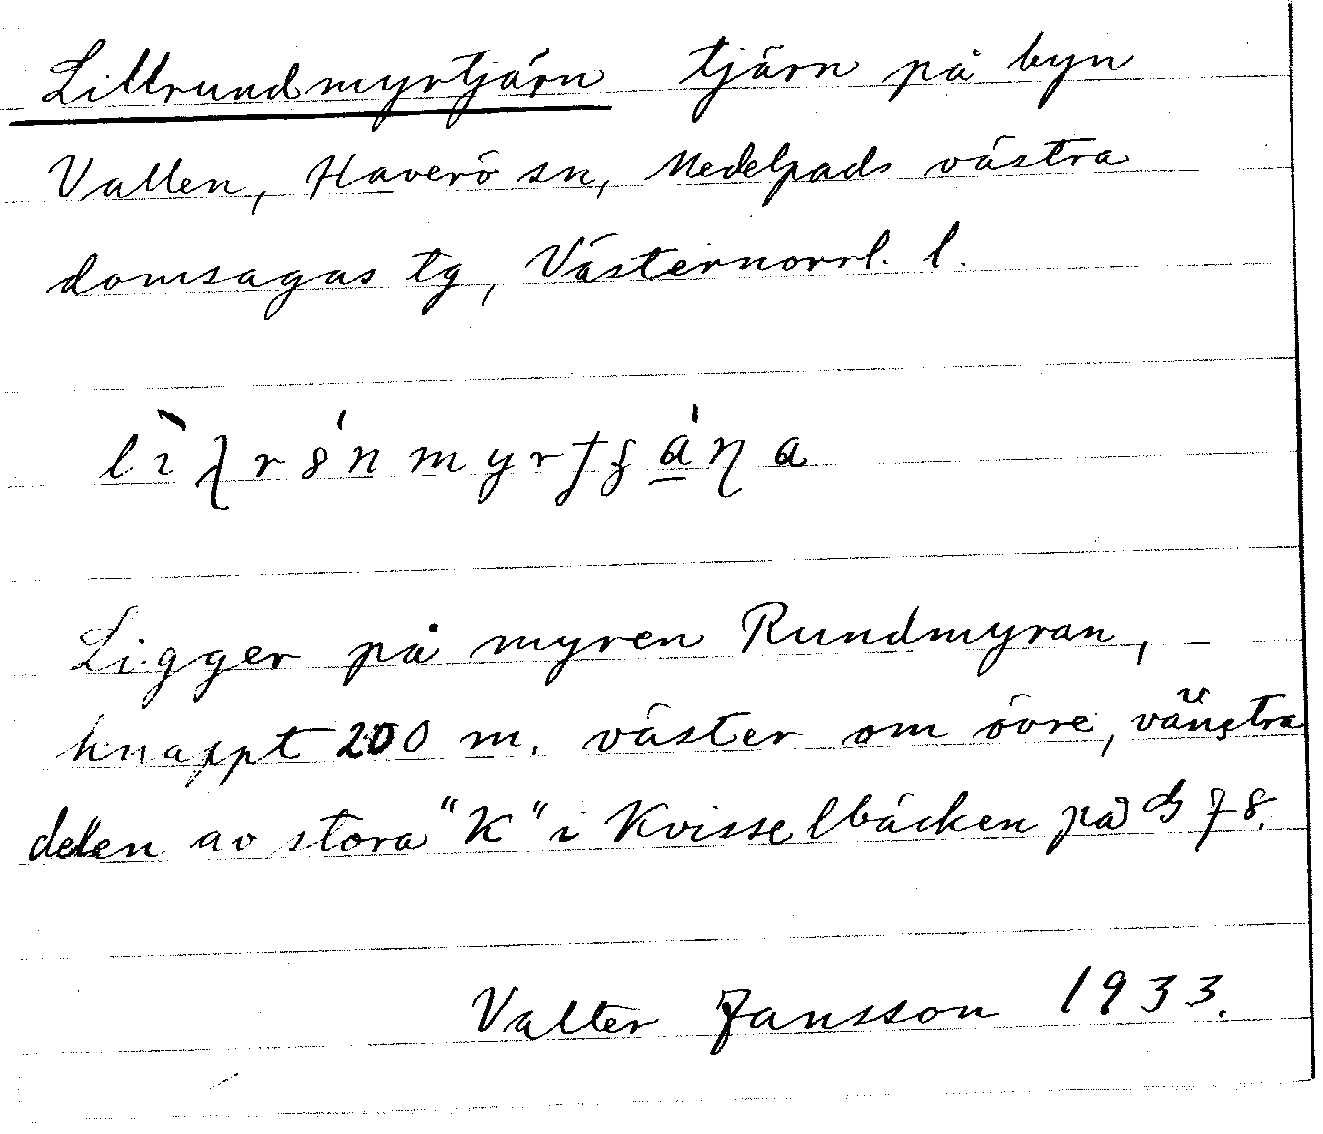 Lillrundmyrtjärn tjärn på byn
Vallen, Haverö sn, Medelpads västra
domsagas tg, Västernorrl. l.
Ligger på myren Rundmyran, –
knappt 200 m. väster om övre, vänstra
delen av stora "K" i Kvisselbäcken på
Valter Jansson 1933.